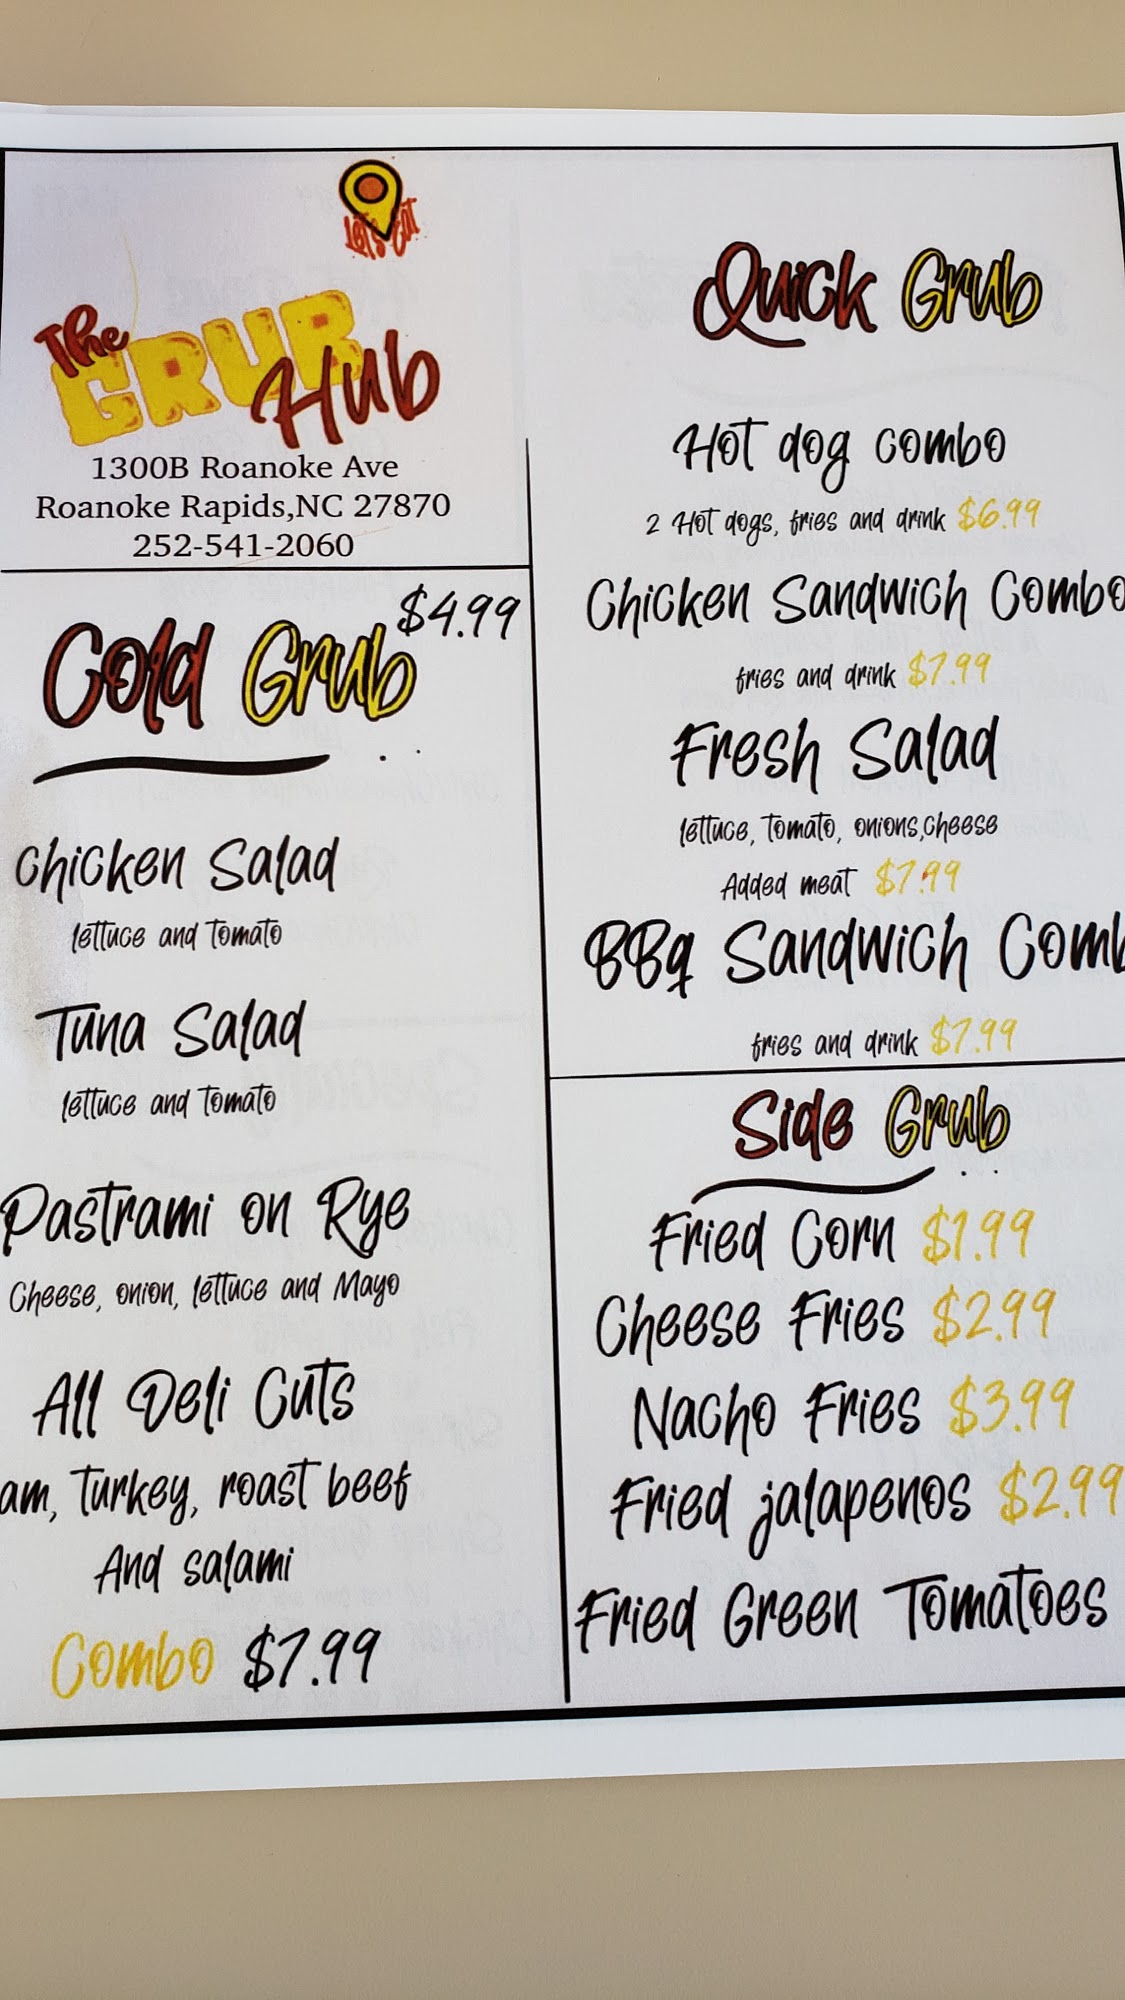 Let's Eat
The GRUB Hub
1300B Roanoke Ave
Roanoke Rapids,NC 27870
252-541-2060
Cold Grub $4.99
Chicken Salad
lettuce and tomato
Tuna Salad
lettuce and tomato
Pastrami on Rye
Cheese, onion, lettuce and Mayo
All Deli Cuts
am, turkey, roast beef
And salami
Combo $7.99
Quick Grub
Hot dog combo
2 Hot dogs, fries and drink $6.99
Chicken Sandwich Combo
fries and drink $7.99
Fresh Salad
lettuce, tomato, onions,cheese
Added meat $7.99
BBq Sandwich Comb
fries and drink $7.99
Side Grub
Fried Corn $1.99
Cheese Fries $2.99
Nacho Fries $3.99
Fried jalapenos $2.99
Fried Green Tomatoes